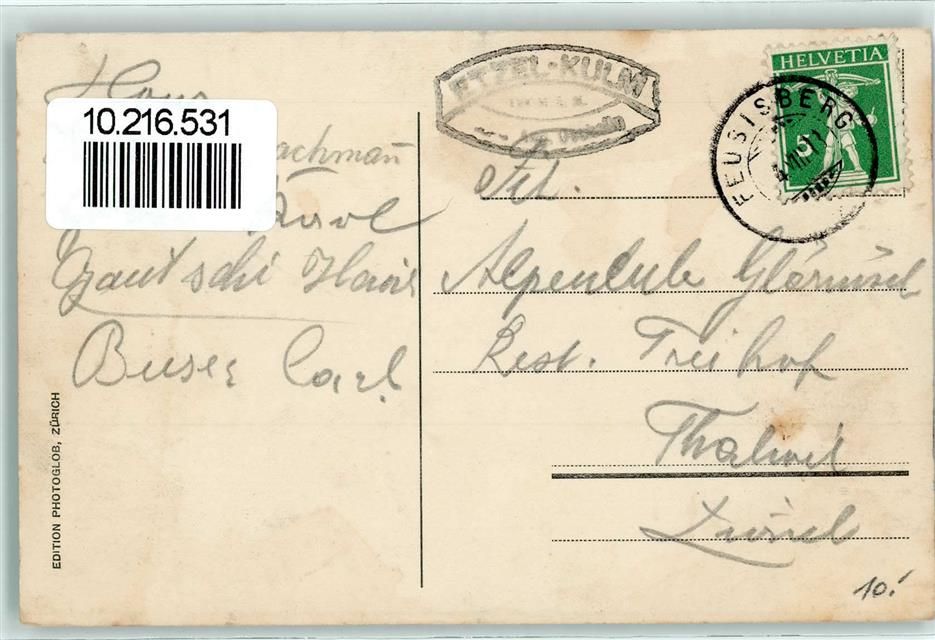 Hans
10.216.531
achmañ
Karl
Gautschi Hans
Buser Carl
EDITION PHOTOGLOB, ZÜRICH
ETZEL-KULM
HELVETIA
5
FEUSISBERG
VII.13
Tit.
Alpenclub Glärnisch
Rest. Freihof
Thalwil
Zürich
10.-